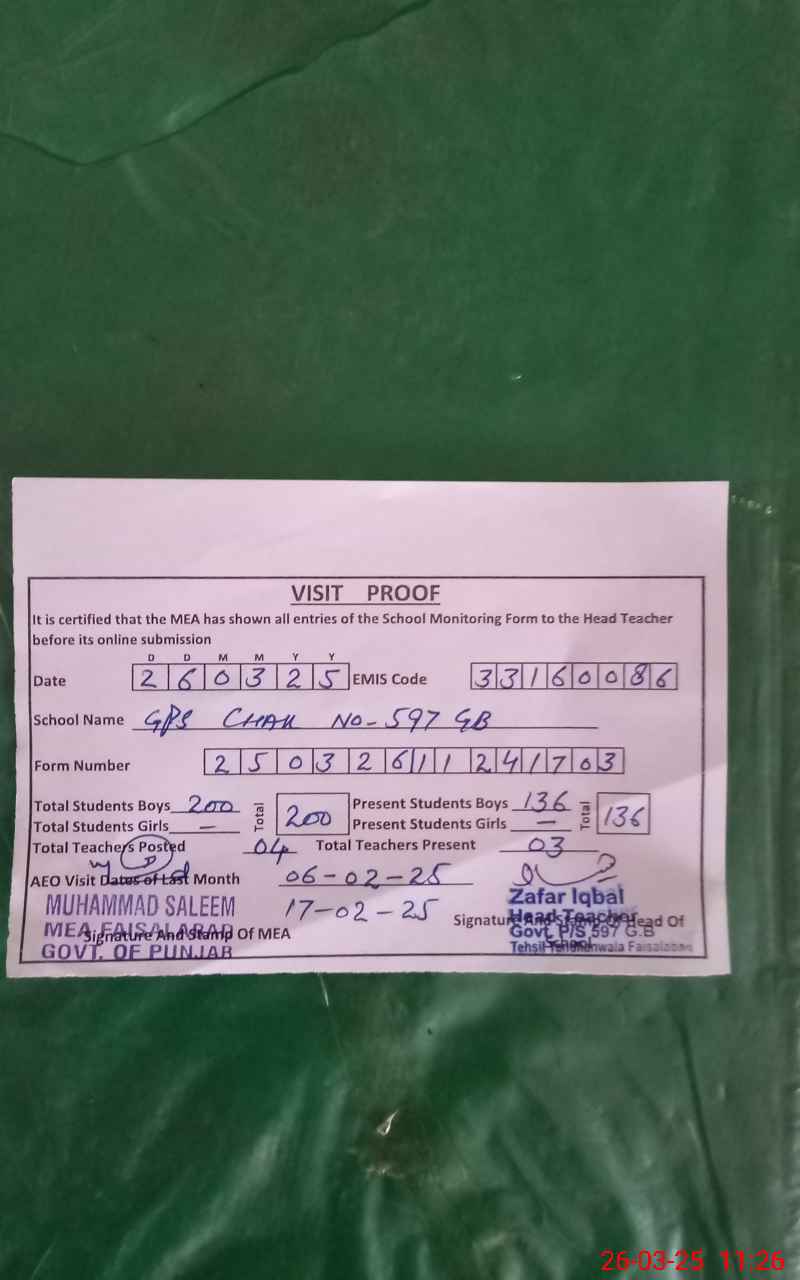 VISIT PROOF
It is certified that the MEA has shown all entries of the School Monitoring Form to the Head Teacher
before its online submission
D D M M Y Y
Date 2 6 0 3 2 5 EMIS Code 3 3 1 6 0 0 8 6
School Name GPS CHAK NO- 597 GB
Form Number 2 5 0 3 2 6 1 1 2 4 1 7 0 3
Total Students Boys 200 Total 200 Present Students Boys 136 Total 136
Total Students Girls — Present Students Girls —
Total Teachers Posted 04 Total Teachers Present 03
AEO Visit Dates of Last Month 06-02-25
17-02-25
MUHAMMAD SALEEM
MEA FAISALABAD
GOVT. OF PUNJAB
Signature And Stamp Of MEA
Zafar Iqbal
Head Teacher
Govt. P/S 597 G.B
Tehsil Tandlianwala Faisalabad
Signature And Stamp Of Head Of
School
26-03-25 11:26